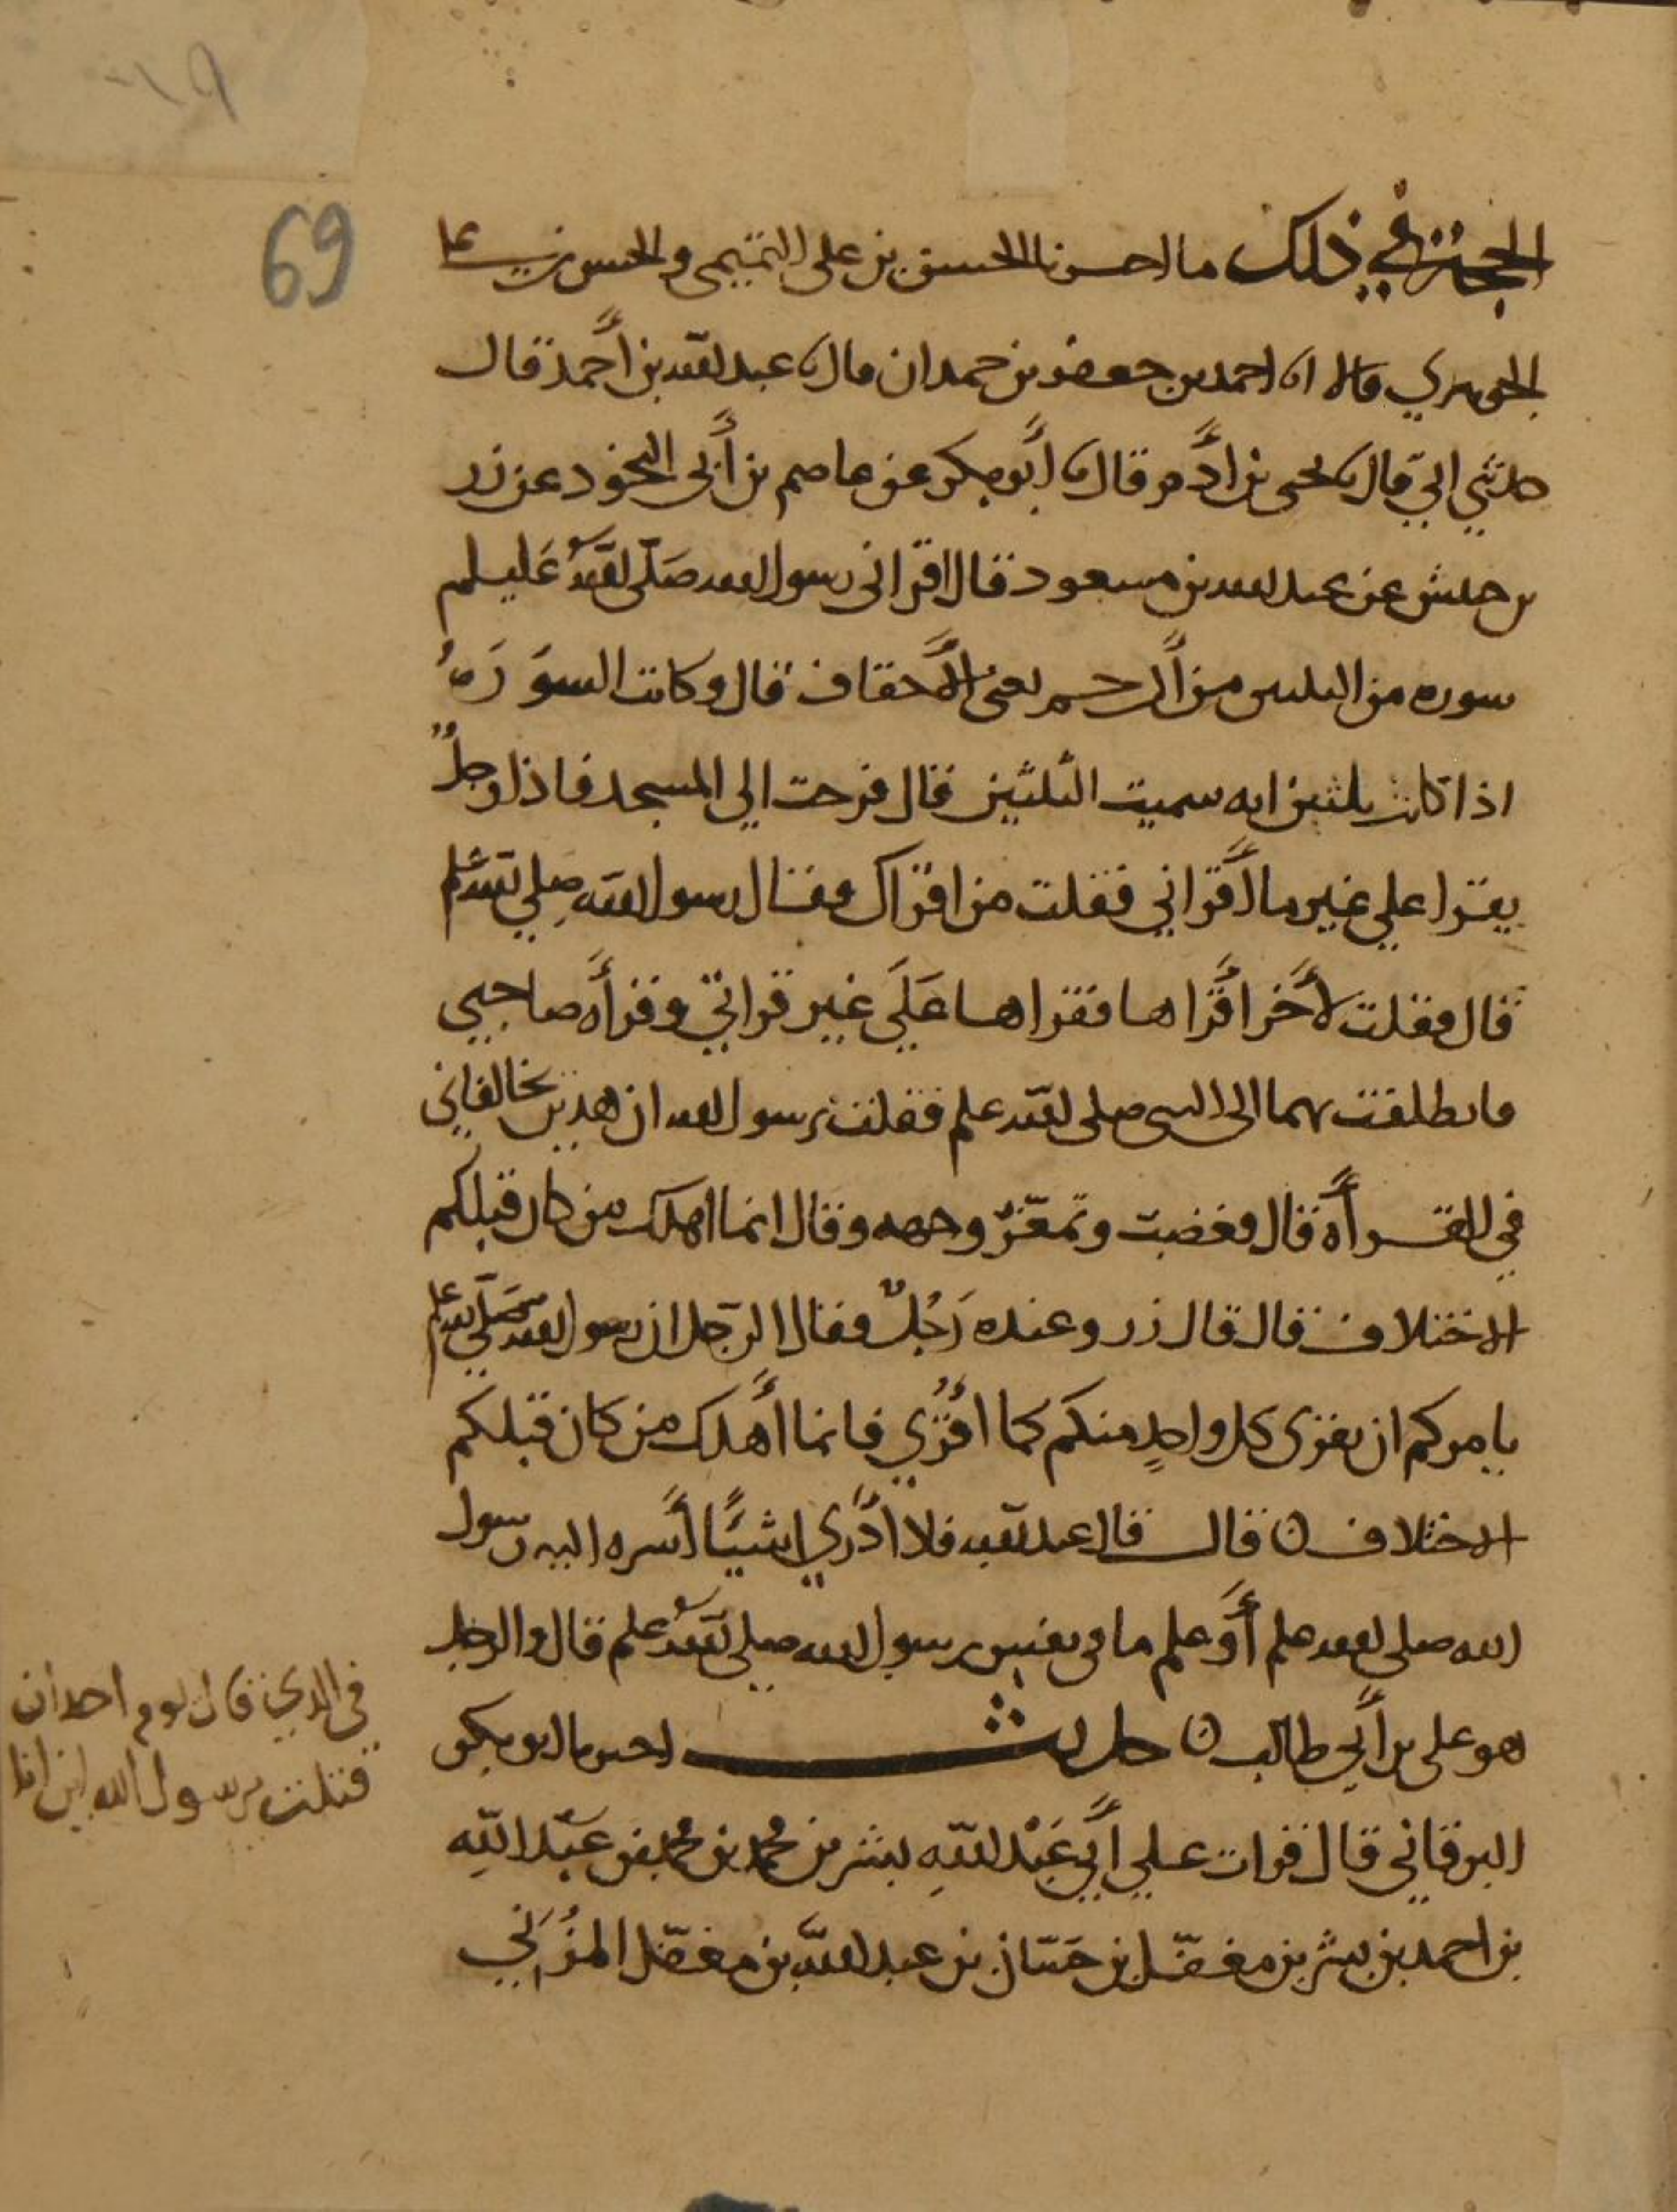 69
الحجة في ذلك ما اخبرنا الحسن بن علي التميمي والحسن بن علي
الجوهري قالا انا احمد بن جعفر بن حمدان قال نا عبد الله بن أحمد قال
حدثني ابي قال نا يحيى بن ادم قال نا أبو بكر عن عاصم بن أبي النجود عن زر
بن حبيش عن عبد الله بن مسعود قال اقراني رسول الله صلى الله عليه وسلم
سوره من الثلثين من أل حم يعني الأحقاف قال وكانت السورة
اذا كانت اكثر من ثلثين ايه سميت الثلثين قال فرحت الي المسجد فاذا رجلٌ
يقرا علي غير ما أقراني فقلت من اقراك فقال رسول الله صلي الله علم
قال فقلت لأخر اقراها فقراها عَلَي غير قراتي وقرأه صاحبي
فانطلقت بهما الى النبي صلى الله علم فقلت يرسول الله ان هذين يخالفاني
في القرأة قال فغضب وتمعّر وجهه وقال انما اهلك من كان قبلكم
الاختلاف قال قال زر وعنده رَجُلٌ فقال الرجل ان رسول الله صَلّي الله علم
يامركم ان يقرى كل واحدٍ منكم كما اُقري فانما أهلك من كان قبلكم
الاختلاف ۞ قال قال عبد الله فلا أدري اشيًا أسره اليه رسول
الله صلى الله علم أو علم ما في نفس رسول الله صلي الله علم قال والرجل
هو علي بن أبي طالب ۞ حديث اخبرنا ابو بكر
البرقاني قال قرات علي أبي عَبْد اللهِ بشر بن محمد بن محمد بن عبد اللهِ
بن احمد بن بشر بن مغفّل بن حَسّان بن عبد اللّه بن مغفّل المُزَني
في الذي قال يوم احد ان
قتلت يرسول الله اين انا